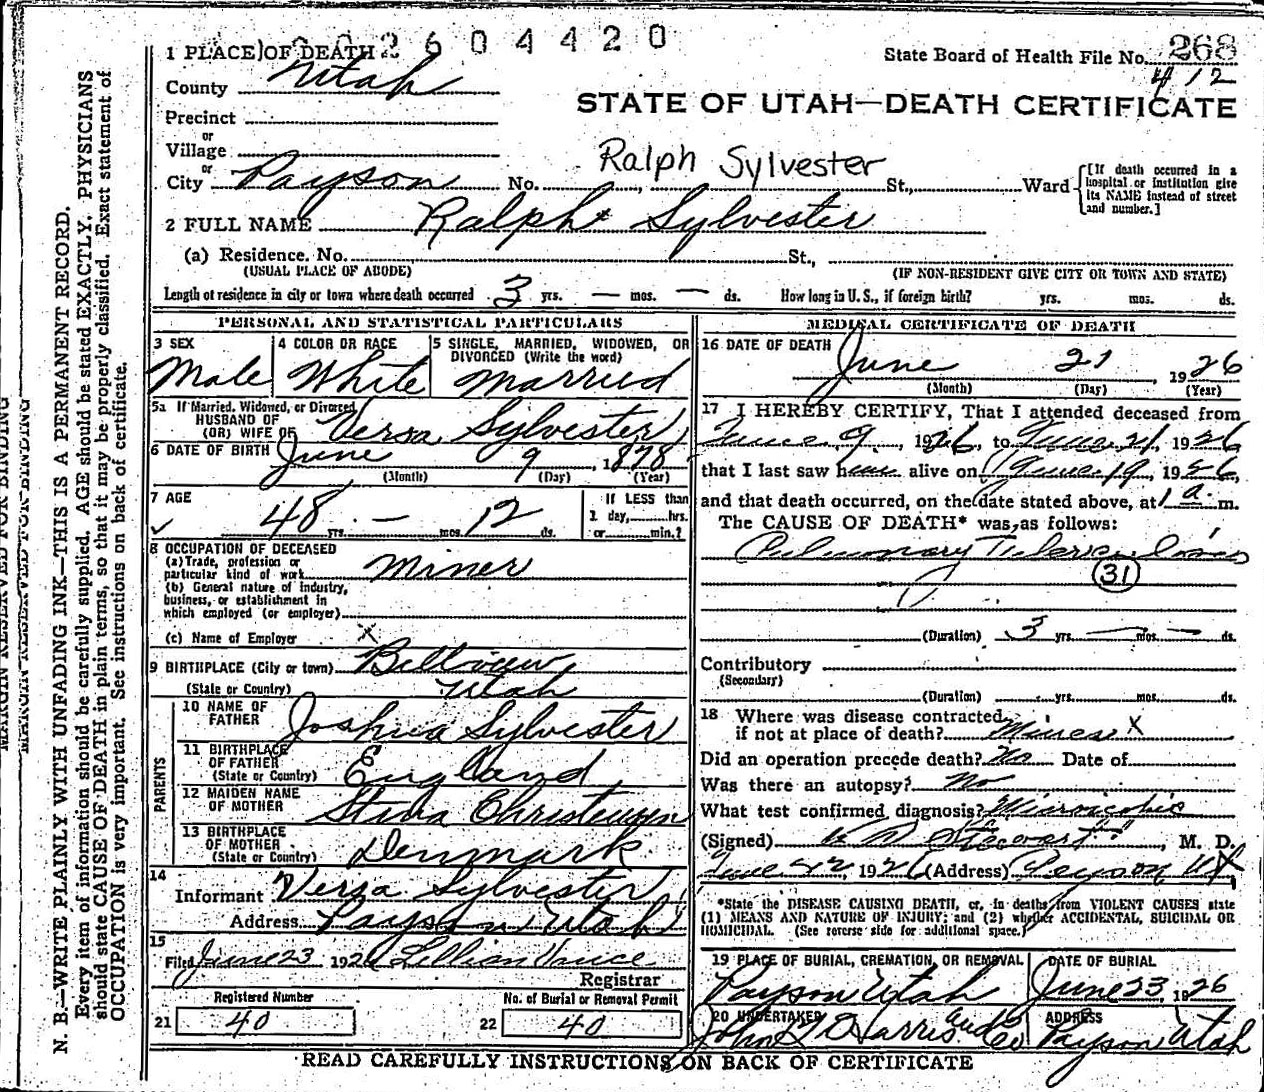 2604420
1 PLACE OF DEATH
State Board of Health File No. 268
412
County Utah
STATE OF UTAH—DEATH CERTIFICATE
Precinct
or
Village
or
Ralph Sylvester
City Payson No. St., Ward
[If death occurred in a
hospital or institution give
its NAME instead of street
and number.]
2 FULL NAME Ralph Sylvester
(a) Residence. No. St.,
(USUAL PLACE OF ABODE) (IF NON-RESIDENT GIVE CITY OR TOWN AND STATE)
Length of residence in city or town where death occurred 3 yrs. — mos. — ds. How long in U. S., if foreign birth? yrs. mos. ds.
PERSONAL AND STATISTICAL PARTICULARS
3 SEX
Male
4 COLOR OR RACE
White
5 SINGLE, MARRIED, WIDOWED, OR
DIVORCED (Write the word)
Married
5a If Married, Widowed, or Divorced
HUSBAND OF
(OR) WIFE OF Versa Sylvester
6 DATE OF BIRTH June 9, 1878
(Month) (Day) (Year)
7 AGE
48 yrs. — mos. 12 ds.
If LESS than
1 day, hrs.
or min.?
8 OCCUPATION OF DECEASED
(a) Trade, profession or
particular kind of work Miner
(b) General nature of industry,
business, or establishment in
which employed (or employer)
(c) Name of Employer X
9 BIRTHPLACE (City or town) Bellview
(State or Country) Utah
PARENTS
10 NAME OF
FATHER Joshua Sylvester
11 BIRTHPLACE
OF FATHER
(State or Country) England
12 MAIDEN NAME
OF MOTHER Christensen
13 BIRTHPLACE
OF MOTHER
(State or Country) Denmark
14
Informant Versa Sylvester
Address Payson Utah
15
Filed June 23 1926 Lillian Vance
Registrar
Registered Number
21 40
No. of Burial or Removal Permit
22 40
MEDICAL CERTIFICATE OF DEATH
16 DATE OF DEATH June 21 1926
(Month) (Day) (Year)
17 I HEREBY CERTIFY, That I attended deceased from
June 9, 1926, to June 21, 1926
that I last saw him alive on June 19, 1926,
and that death occurred, on the date stated above, at 1 a. m.
The CAUSE OF DEATH* was as follows:
Pulmonary Tuberculosis
31
(Duration) 3 yrs. — mos. — ds.
Contributory
(Secondary)
(Duration) yrs. mos. ds.
18 Where was disease contracted
if not at place of death? Mines X
Did an operation precede death? No Date of
Was there an autopsy? No
What test confirmed diagnosis? Microscopic
(Signed) Stewart, M. D.
June 22, 1926 (Address) Payson Ut
*State the DISEASE CAUSING DEATH, or, in deaths from VIOLENT CAUSES state
(1) MEANS AND NATURE OF INJURY; and (2) whether ACCIDENTAL, SUICIDAL OR
HOMICIDAL. (See reverse side for additional space.)
19 PLACE OF BURIAL, CREMATION, OR REMOVAL
Payson Utah
DATE OF BURIAL
June 23, 1926
20 UNDERTAKER
John Harris and Co
ADDRESS
Payson Utah
READ CAREFULLY INSTRUCTIONS ON BACK OF CERTIFICATE
MARGIN RESERVED FOR BINDING
MARGIN RESERVED FOR BINDING
N. B.—WRITE PLAINLY WITH UNFADING INK—THIS IS A PERMANENT RECORD.
Every item of information should be carefully supplied. AGE should be stated EXACTLY. PHYSICIANS
should state CAUSE OF DEATH in plain terms, so that it may be properly classified. Exact statement of
OCCUPATION is very important. See instructions on back of certificate.